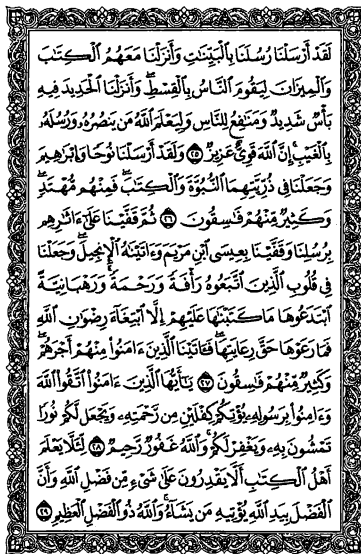 لَقَدْ أَرْسَلْنَا رُسُلَنَا بِالْبَيِّنَٰتِ وَأَنزَلْنَا مَعَهُمُ الْكِتَٰبَ
وَالْمِيزَانَ لِيَقُومَ النَّاسُ بِالْقِسْطِ ۖ وَأَنزَلْنَا الْحَدِيدَ فِيهِ
بَأْسٌ شَدِيدٌ وَمَنَٰفِعُ لِلنَّاسِ وَلِيَعْلَمَ اللَّهُ مَن يَنصُرُهُۥ وَرُسُلَهُۥ
بِالْغَيْبِ ۚ إِنَّ اللَّهَ قَوِيٌّ عَزِيزٌ ﴿٢٥﴾ وَلَقَدْ أَرْسَلْنَا نُوحًا وَإِبْرَٰهِيمَ
وَجَعَلْنَا فِى ذُرِّيَّتِهِمَا النُّبُوَّةَ وَالْكِتَٰبَ ۖ فَمِنْهُم مُّهْتَدٍ ۖ
وَكَثِيرٌ مِّنْهُمْ فَٰسِقُونَ ﴿٢٦﴾ ثُمَّ قَفَّيْنَا عَلَىٰٓ ءَاثَٰرِهِم
بِرُسُلِنَا وَقَفَّيْنَا بِعِيسَى ابْنِ مَرْيَمَ وَءَاتَيْنَٰهُ الْإِنجِيلَ ۖ وَجَعَلْنَا
فِى قُلُوبِ الَّذِينَ اتَّبَعُوهُ رَأْفَةً وَرَحْمَةً ۚ وَرَهْبَانِيَّةً
ابْتَدَعُوهَا مَا كَتَبْنَٰهَا عَلَيْهِمْ إِلَّا ابْتِغَآءَ رِضْوَٰنِ اللَّهِ
فَمَا رَعَوْهَا حَقَّ رِعَايَتِهَا ۖ فَـَٔاتَيْنَا الَّذِينَ ءَامَنُوا مِنْهُمْ أَجْرَهُمْ ۖ
وَكَثِيرٌ مِّنْهُمْ فَٰسِقُونَ ﴿٢٧﴾ يَٰٓأَيُّهَا الَّذِينَ ءَامَنُوا اتَّقُوا اللَّهَ
وَءَامِنُوا بِرَسُولِهِۦ يُؤْتِكُمْ كِفْلَيْنِ مِن رَّحْمَتِهِۦ وَيَجْعَل لَّكُمْ نُورًا
تَمْشُونَ بِهِۦ وَيَغْفِرْ لَكُمْ ۚ وَاللَّهُ غَفُورٌ رَّحِيمٌ ﴿٢٨﴾ لِّئَلَّا يَعْلَمَ
أَهْلُ الْكِتَٰبِ أَلَّا يَقْدِرُونَ عَلَىٰ شَىْءٍ مِّن فَضْلِ اللَّهِ ۙ وَأَنَّ
الْفَضْلَ بِيَدِ اللَّهِ يُؤْتِيهِ مَن يَشَآءُ ۚ وَاللَّهُ ذُو الْفَضْلِ الْعَظِيمِ ﴿٢٩﴾